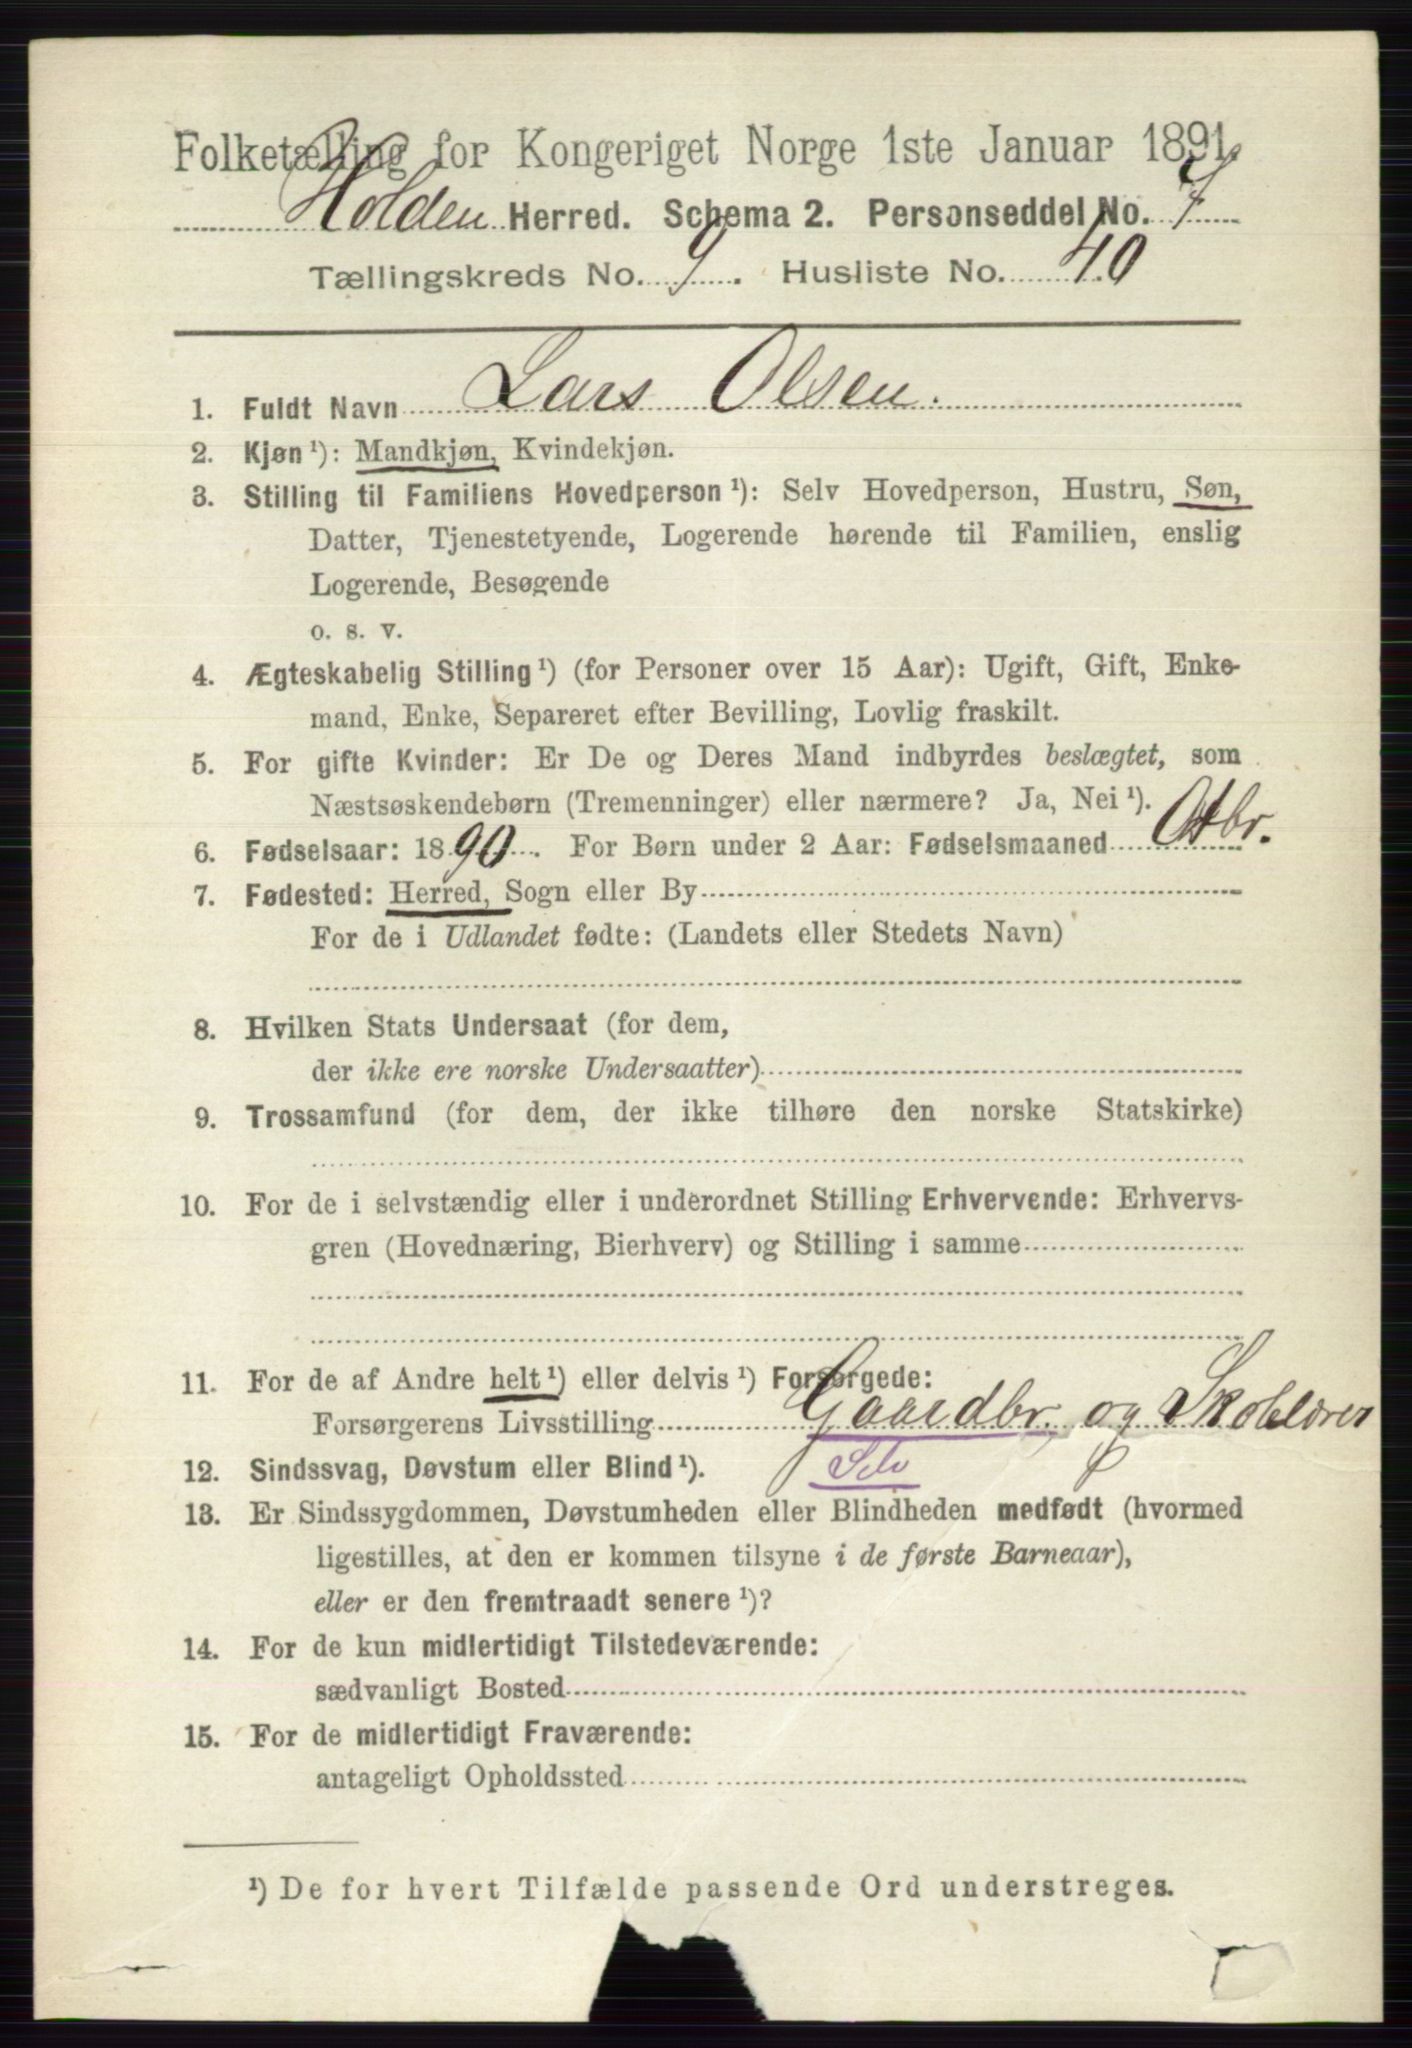 Folketælling for Kongeriget Norge 1ste Januar 1891.
Holden Herred. Schema 2. Personseddel No. 7
Tællingskreds No. 9. Husliste No. 40
1. Fuldt Navn Lars Olsen.
2. Kjøn ¹): Mandkjøn, Kvindekjøn.
3. Stilling til Familiens Hovedperson ¹): Selv Hovedperson, Hustru, Søn,
Datter, Tjenestetyende, Logerende hørende til Familien, enslig
Logerende, Besøgende
o. s. v.
4. Ægteskabelig Stilling ¹) (for Personer over 15 Aar): Ugift, Gift, Enke-
mand, Enke, Separeret efter Bevilling, Lovlig fraskilt.
5. For gifte Kvinder: Er De og Deres Mand indbyrdes beslægtet, som
Næstsøskendebørn (Tremenninger) eller nærmere? Ja, Nei ¹).
6. Fødselsaar: 1890. For Børn under 2 Aar: Fødselsmaaned Otbr.
7. Fødested: Herred, Sogn eller By
For de i Udlandet fødte: (Landets eller Stedets Navn)
8. Hvilken Stats Undersaat (for dem,
der ikke ere norske Undersaatter)
9. Trossamfund (for dem, der ikke tilhøre den norske Statskirke)
10. For de i selvstændig eller i underordnet Stilling Erhvervende: Erhvervs-
gren (Hovednæring, Bierhverv) og Stilling i samme
11. For de af Andre helt ¹) eller delvis ¹) Forsørgede:
Forsørgerens Livsstilling Gaardbr. og Skolelærer
Selv
12. Sindssvag, Døvstum eller Blind ¹).
13. Er Sindssygdommen, Døvstumheden eller Blindheden medfødt (hvormed
ligestilles, at den er kommen tilsyne i de første Barneaar),
eller er den fremtraadt senere ¹)?
14. For de kun midlertidigt Tilstedeværende:
sædvanligt Bosted
15. For de midlertidigt Fraværende:
antageligt Opholdssted
¹) De for hvert Tilfælde passende Ord understreges.